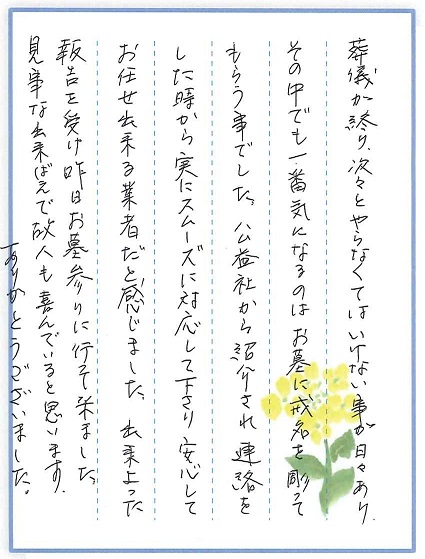 葬儀が終り、次々とやらなくてはいけない事が日々あり、
その中でも一番気になるのはお墓に戒名を彫って
もらう事でした。公益社から紹介され連絡を
した時から実にスムーズに対応して下さり安心して
お任せ出来る業者だと感じました。出来上った
報告を受け昨日お墓参りに行って来ました。
見事な出来ばえで故人も喜んでいると思います。
ありがとうございました。